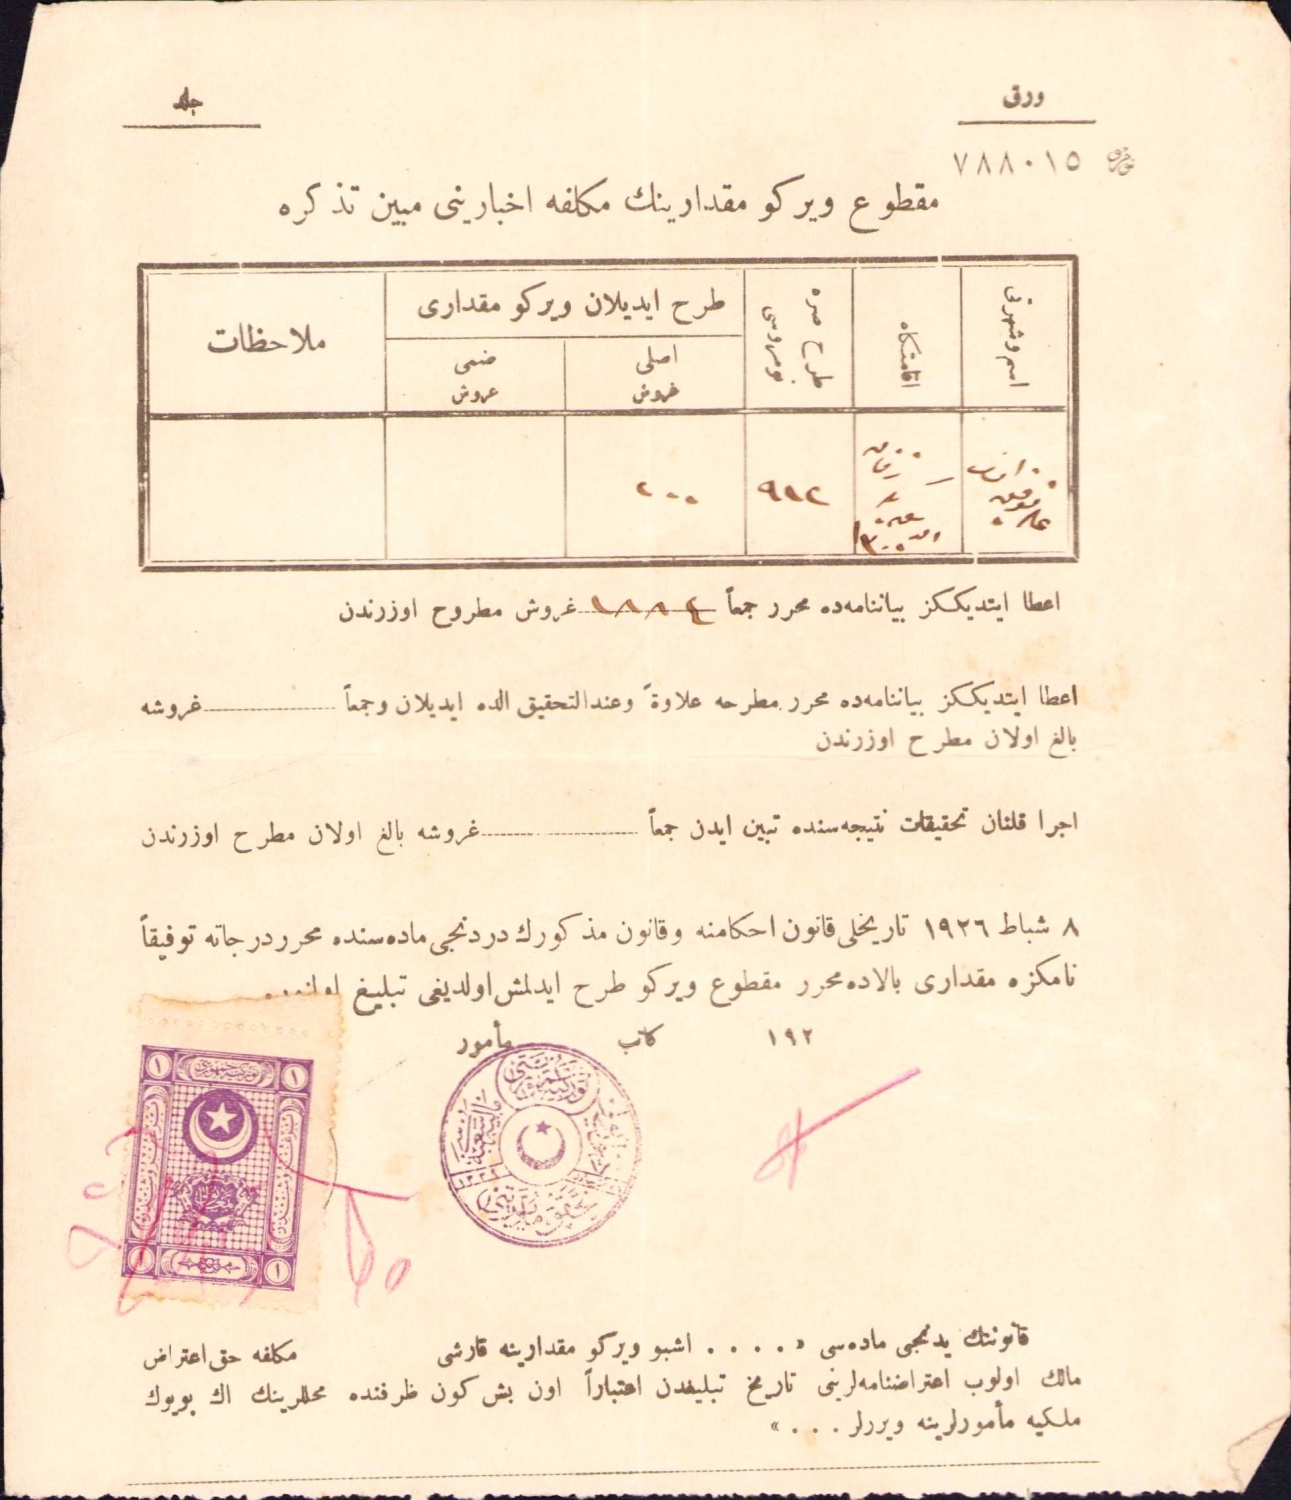 ورق
جلد
نومرو ٧٨٨٠١٥
مقطوع ويركو مقدارينك مكلفه اخبارينى مبين تذكره
اسم وشهرتى
اقامتگاه
طرح صره نومروسى
طرح ايديلان ويركو مقدارى
اصلى غروش
ضمى غروش
ملاحظات
٩١٢
٢٠٠
اعطا ايتديككز بياننامه‌ده محرر جمعاً غروش مطروح اوزرندن
اعطا ايتديككز بياننامه‌ده محرر مطرحه علاوةً وعندالتحقيق الده ايديلان وجمعاً غروشه
بالغ اولان مطرح اوزرندن
اجرا قلنان تحقيقات نتيجه‌سنده تبين ايدن جمعاً غروشه بالغ اولان مطرح اوزرندن
٨ شباط ١٩٢٦ تاريخلى قانون احكامنه وقانون مذكورك دردنجى ماده‌سنده محرر درجاته توفيقاً
نامكزه مقدارى بالاده محرر مقطوع ويركو طرح ايدلمش اولديغى تبليغ اولنور.
١٩٢ كاتب مأمور
توركيه جمهوريتى
١
١
١
١
توركيه جمهوريتى
ماليه
تحقق
١٣٣٩
قانوننك يدنجى ماده‌سى « . . . . اشبو ويركو مقدارينه قارشى مكلفه حق اعتراض
مالك اولوب اعتراضنامه‌لرينى تاريخ تبليغدن اعتباراً اون بش كون ظرفنده محللرينك اك بويوك
ملكيه مأمورلرينه ويررلر . . . »